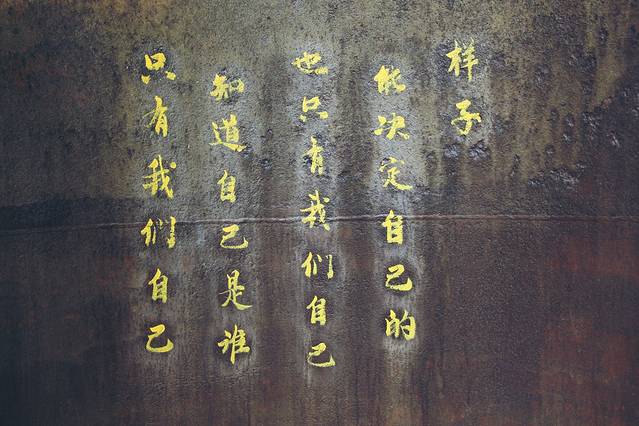 只有我们自己
知道自己是谁
也只有我们自己
能决定自己的
样子